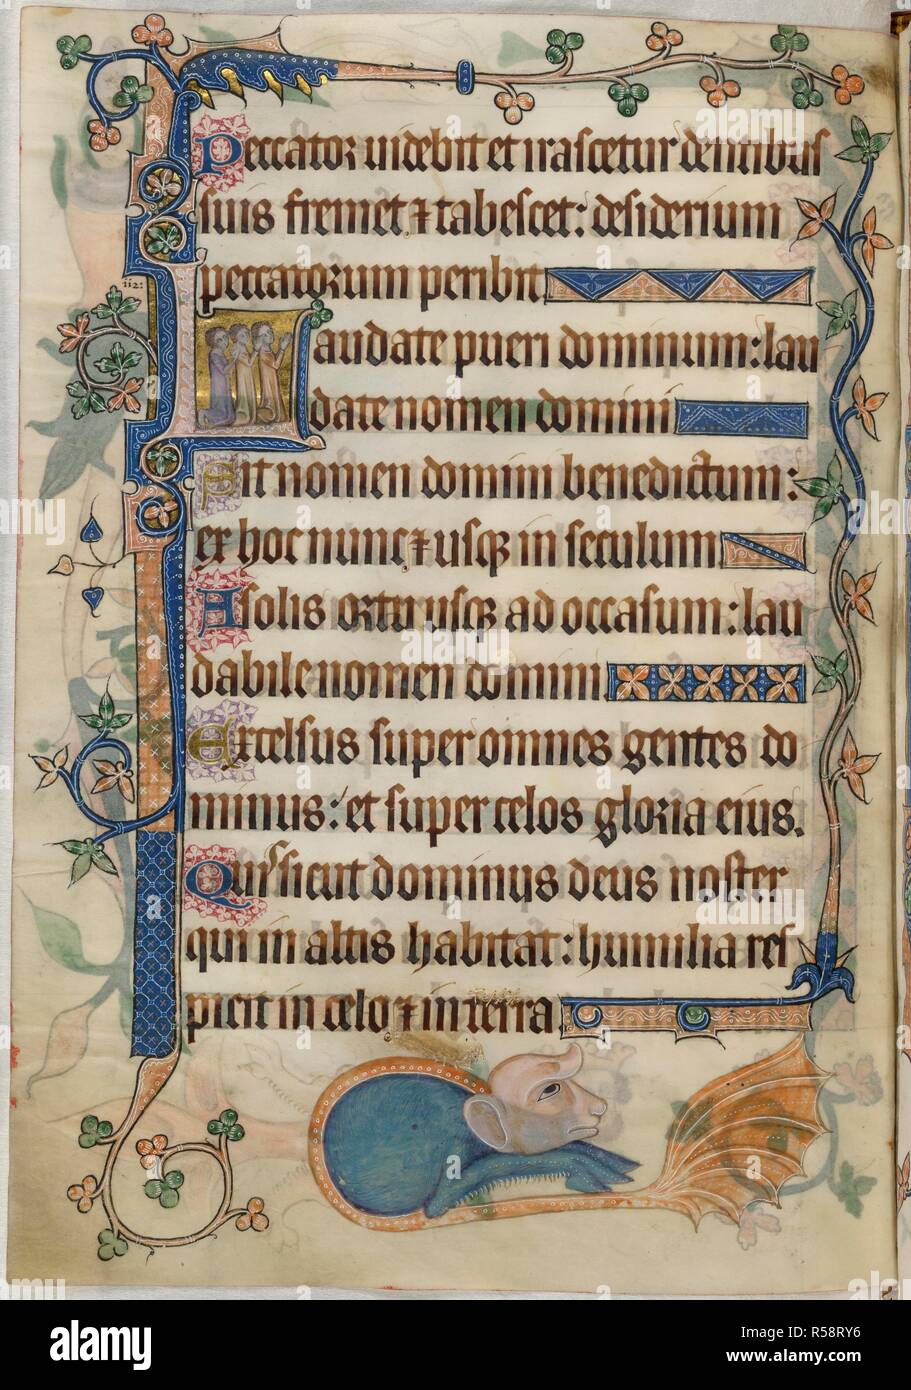 Peccator uidebit et irascetur dentibus
suis fremet ⁊ tabescet: desiderium
peccatorum peribit
Laudate pueri dominum: lau
date nomen domini
Sit nomen domini benedictum:
ex hoc nunc ⁊ usqꝫ in seculum
A solis ortu usqꝫ ad occasum: lau
dabile nomen domini
Excelsus super omnes gentes do
minus: et super celos gloria eius.
Quis sicut dominus deus noster
qui in altis habitat: humilia res
picit in celo ⁊ in terra
alamy
Image ID: R58RY6
www.alamy.com